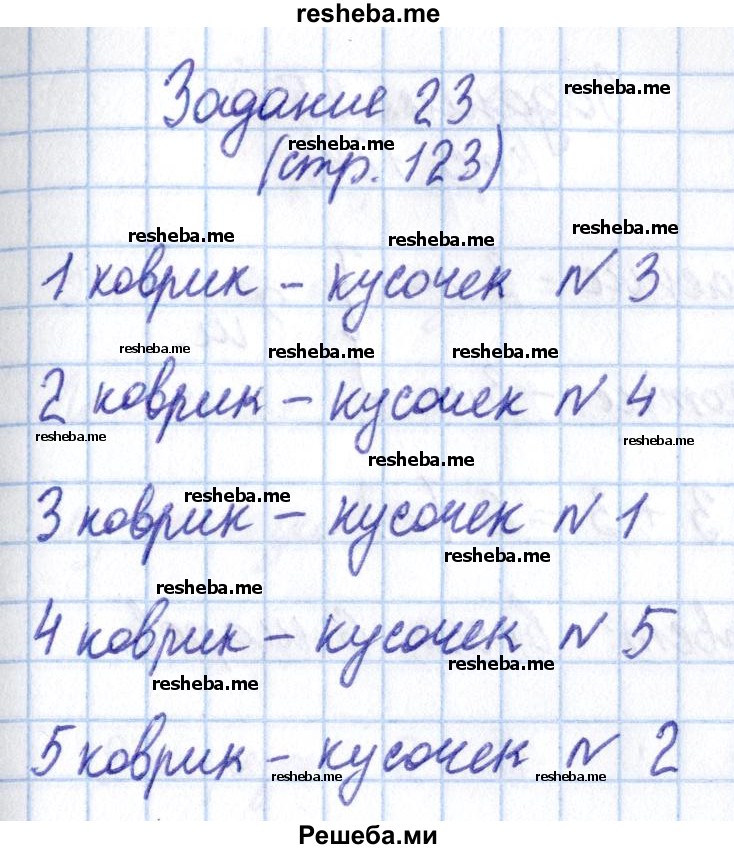 resheba.me
Задание 23
resheba.me
resheba.me
(стр. 123)
resheba.me
resheba.me
resheba.me
1 коврик – кусочек № 3
resheba.me
resheba.me
resheba.me
2 коврик – кусочек № 4
resheba.me
resheba.me
resheba.me
resheba.me
3 коврик – кусочек № 1
resheba.me
resheba.me
4 коврик – кусочек № 5
resheba.me
resheba.me
5 коврик – кусочек № 2
resheba.me
resheba.me
Решеба.ми